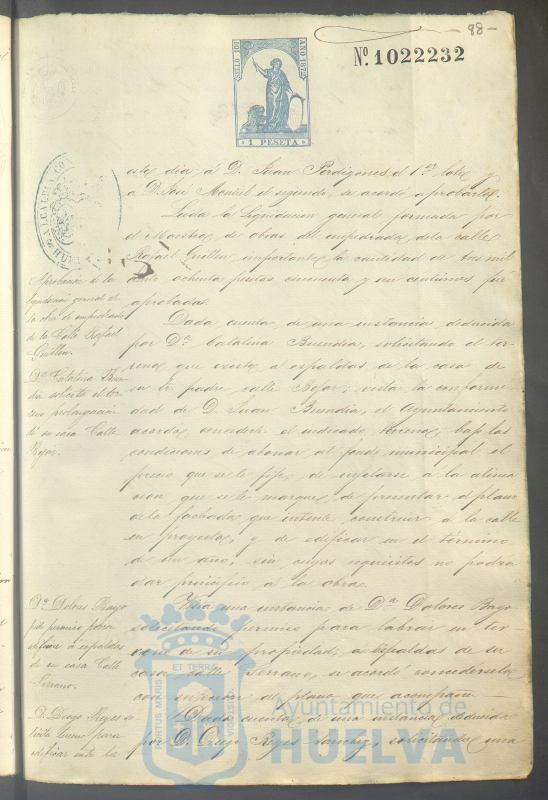 88-
SELLO 10º
AÑO 1879
1 PESETA
Nº. 1022232
ALCALDIA CON
HUELVA
este dia á D. Juan Perdigones el 1er lote y
a D. José Montiel el segundo, se acordó aprobarlo.
Leida la liquidacion general formada por
el Maestro de obras del empedrado de la calle
Rafael Guillen, importante la cantidad de tres mil
ochenta pesetas cincuenta y un centimos fué
aprobada.
Dada cuenta de una instancia deducida
por Dª Catalina Buendia, solicitando el ter-
reno que existe á espaldas de la casa de
su Sr. padre calle Bejar; vista la conformi-
dad de D. Juan Buendia, el Ayuntamiento
acordó concederle el indicado terreno, bajo las
condiciones de abonar al fondo municipal el
precio que se le fije, de sujetarse á la alinea
cion que se le marque, de presentar el plano
de la fachada que intente construir á la calle
en proyecto, y de edificar en el término
de un año, sin cuyos requisitos no podrá
dar principio á la obra.
Vista una instancia de Dª Dolores Bayo
solicitando permiso para labrar un ter-
reno de su propiedad, á espaldas de su
casa calle Serrano, se acordó concederselo
con sujecion al plano que acompaña.
Dada cuenta de una instancia deducida
por D. Diego Reyes Sanchez, solicitando una
Aprobacion de la
liquidacion general de
la obra de empedrado
de la Calle Rafael
Guillen.
Dª Catalina Buen-
dia solicita el ter-
reno prolongacion
de su casa Calle
Bejar.
Dª Dolores Bayo
pide permiso para
edificar á espaldas
de su casa Calle
Serrano.
D. Diego Reyes so-
licita terreno para
edificar ante la
ET TERRA
PORTUS MARIS
CUSTODIA
Ayuntamiento de
HUELVA